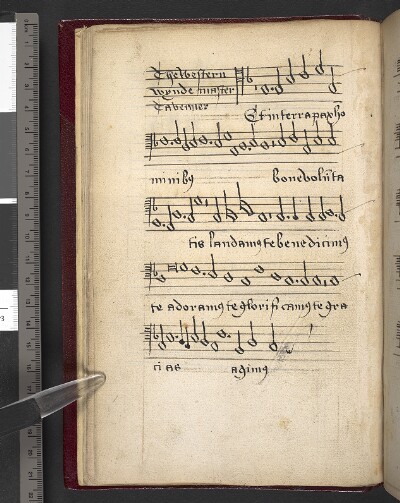 The Western
wynde master
Taverner
Et in terra pax ho
minibꝰ bone volūta
tis laudamꝰ te benedicimꝰ
te adoramꝰ te glorificamꝰ te gra
ti as agimꝰ